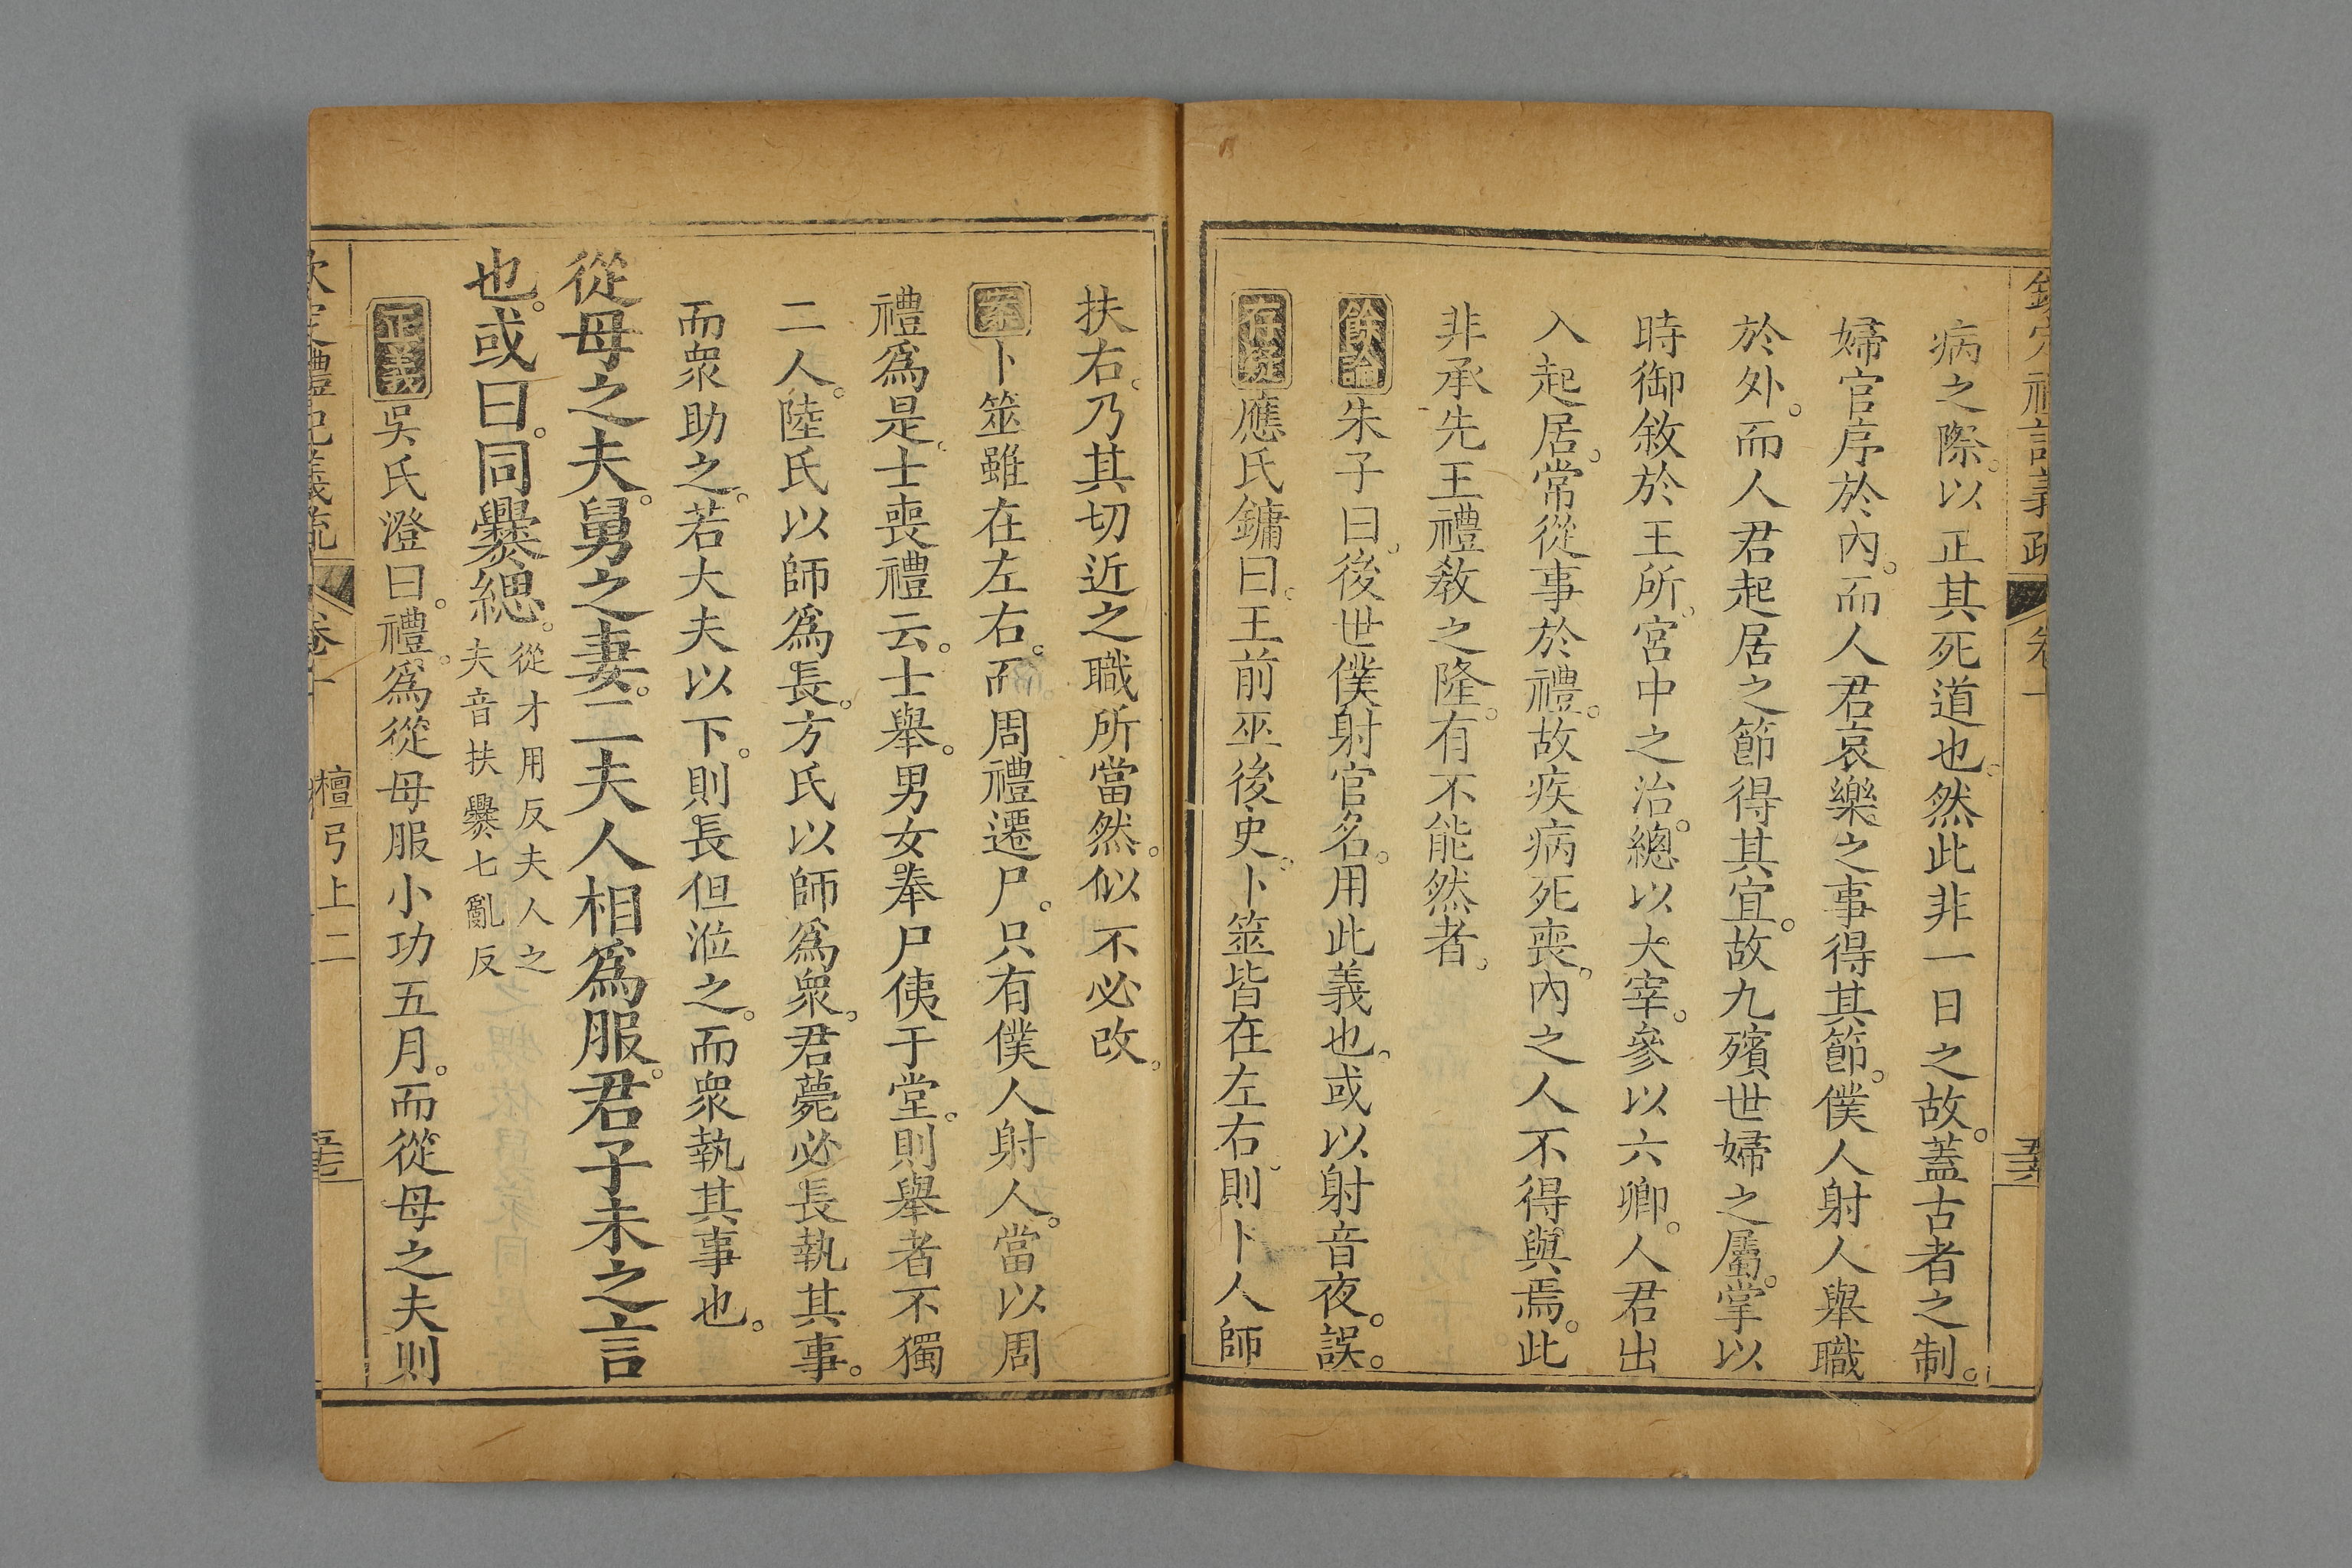 欽定禮記義疏 卷十
病之際。以正其死道也。然此非一日之故。蓋古者之制。
婦官序於內。而人君哀樂之事得其節。僕人射人舉職
於外。而人君起居之節得其宜。故九殯世婦之屬。掌以
時御敘於王所。宮中之治。總以大宰。參以六卿。人君出
入起居。常從事於禮。故疾病死喪。內之人不得與焉。此
非承先王禮敎之隆。有不能然者。
餘論朱子曰。後世僕射官名。用此義也。或以射音夜。誤。
存疑應氏鏞曰。王前巫後史。卜筮皆在左右。則卜人師
扶右。乃其切近之職所當然。似不必改。
案卜筮雖在左右。而周禮遷尸。只有僕人射人。當以周
禮爲是。士喪禮云。士舉。男女奉尸侇于堂。則舉者不獨
二人。陸氏以師爲長。方氏以師爲衆。君薨必長執其事。
而衆助之。若大夫以下。則長但涖之。而衆執其事也。
從母之夫。舅之妻。二夫人相爲服。君子未之言
也。或曰。同爨緦。從才用反夫人之
夫音扶爨七亂反
正義吳氏澄曰。禮。爲從母服小功五月。而從母之夫則
欽定禮記義疏 卷十 檀弓上二